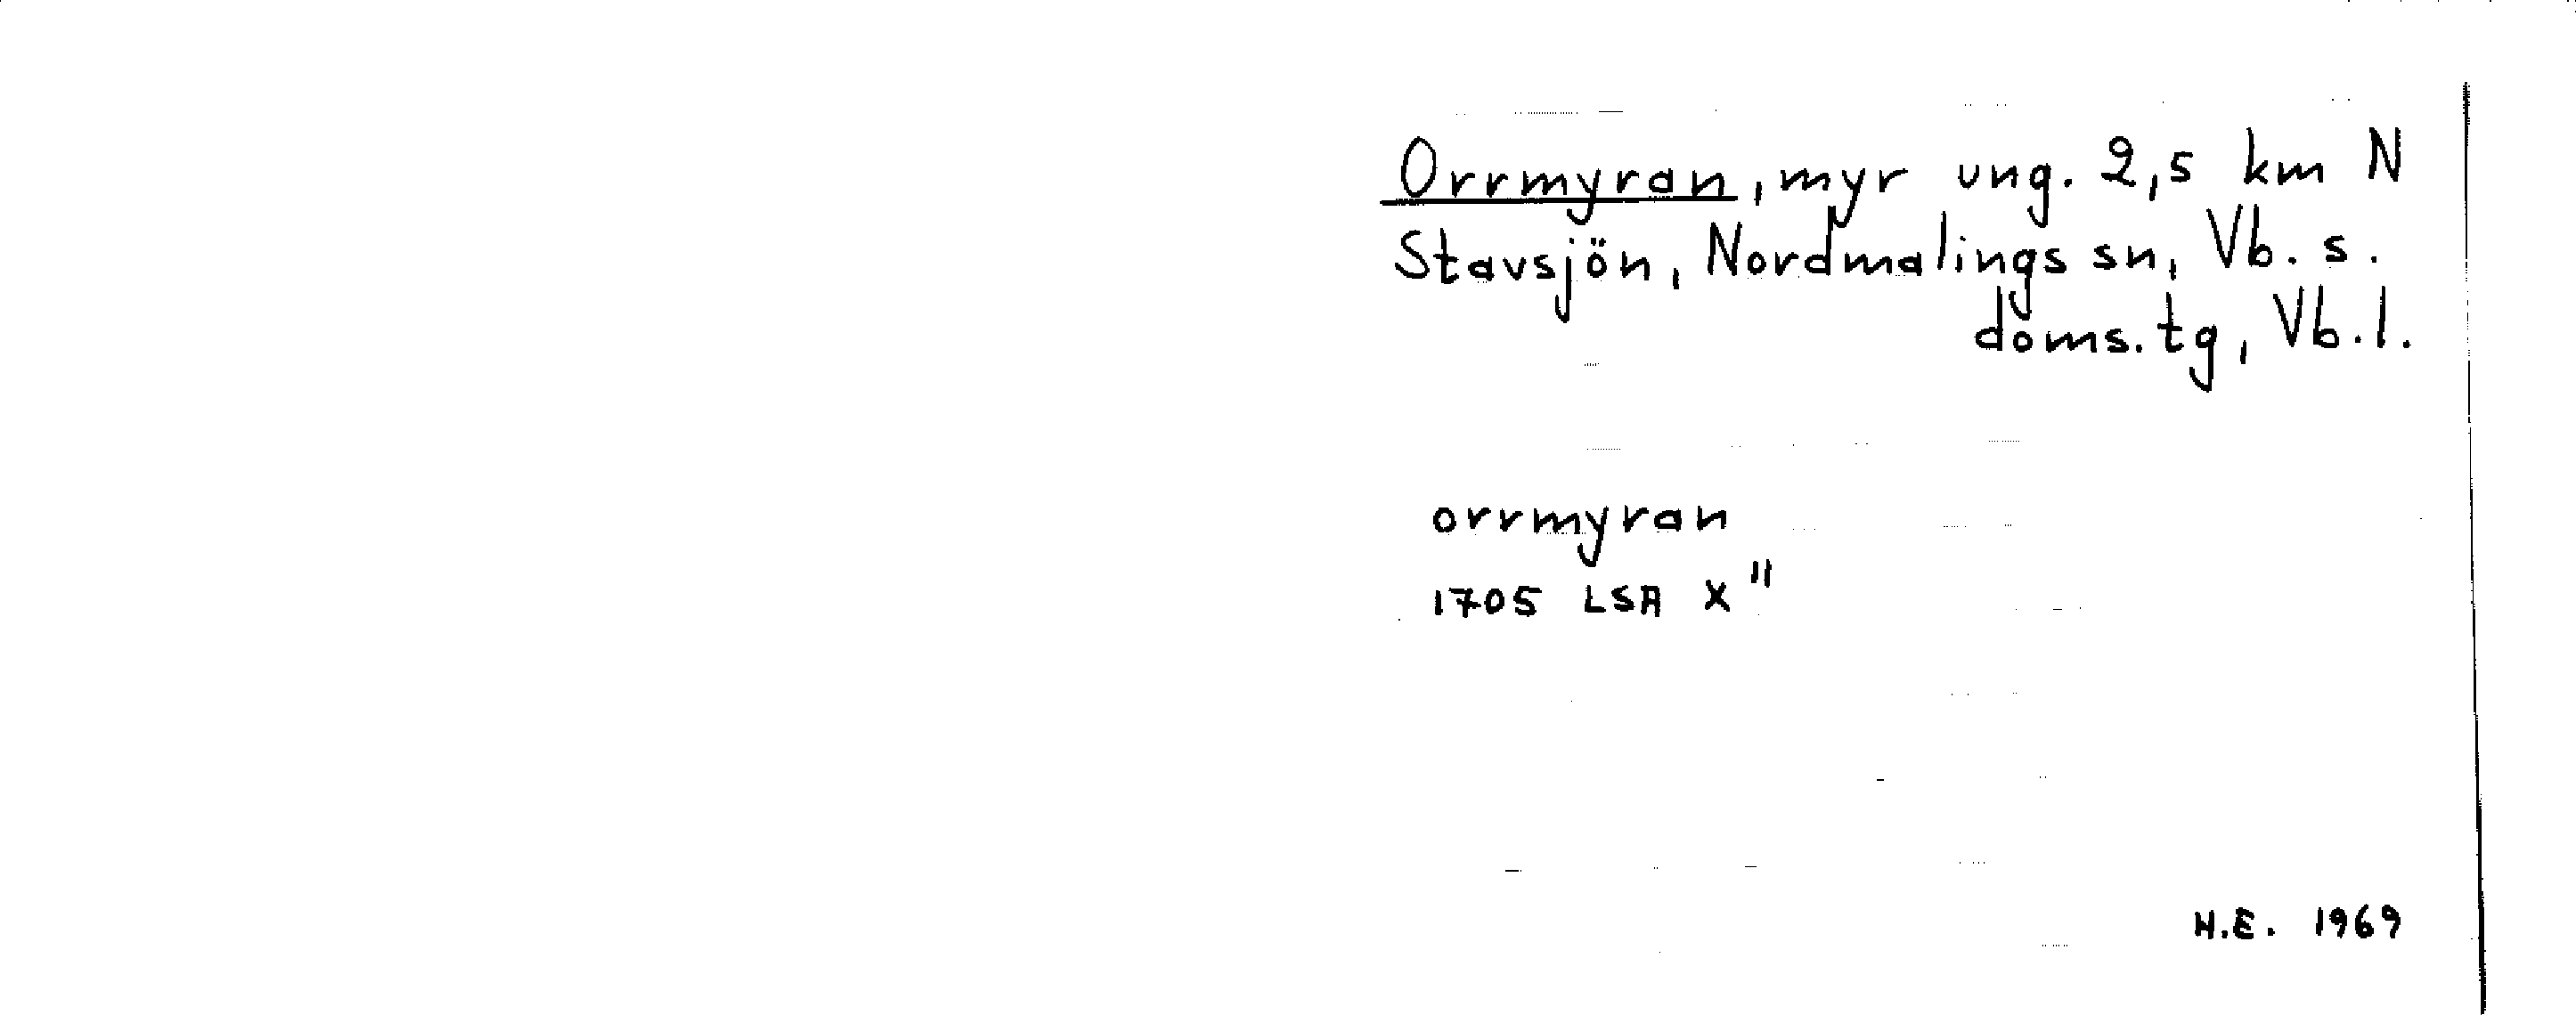 Orrmyran, myr ung. 2,5 km N
Stavsjön, Nordmalings sn, Vb. s.
doms.tg, Vb.l.
orrmyran
1705 LSA X"
H.E. 1969